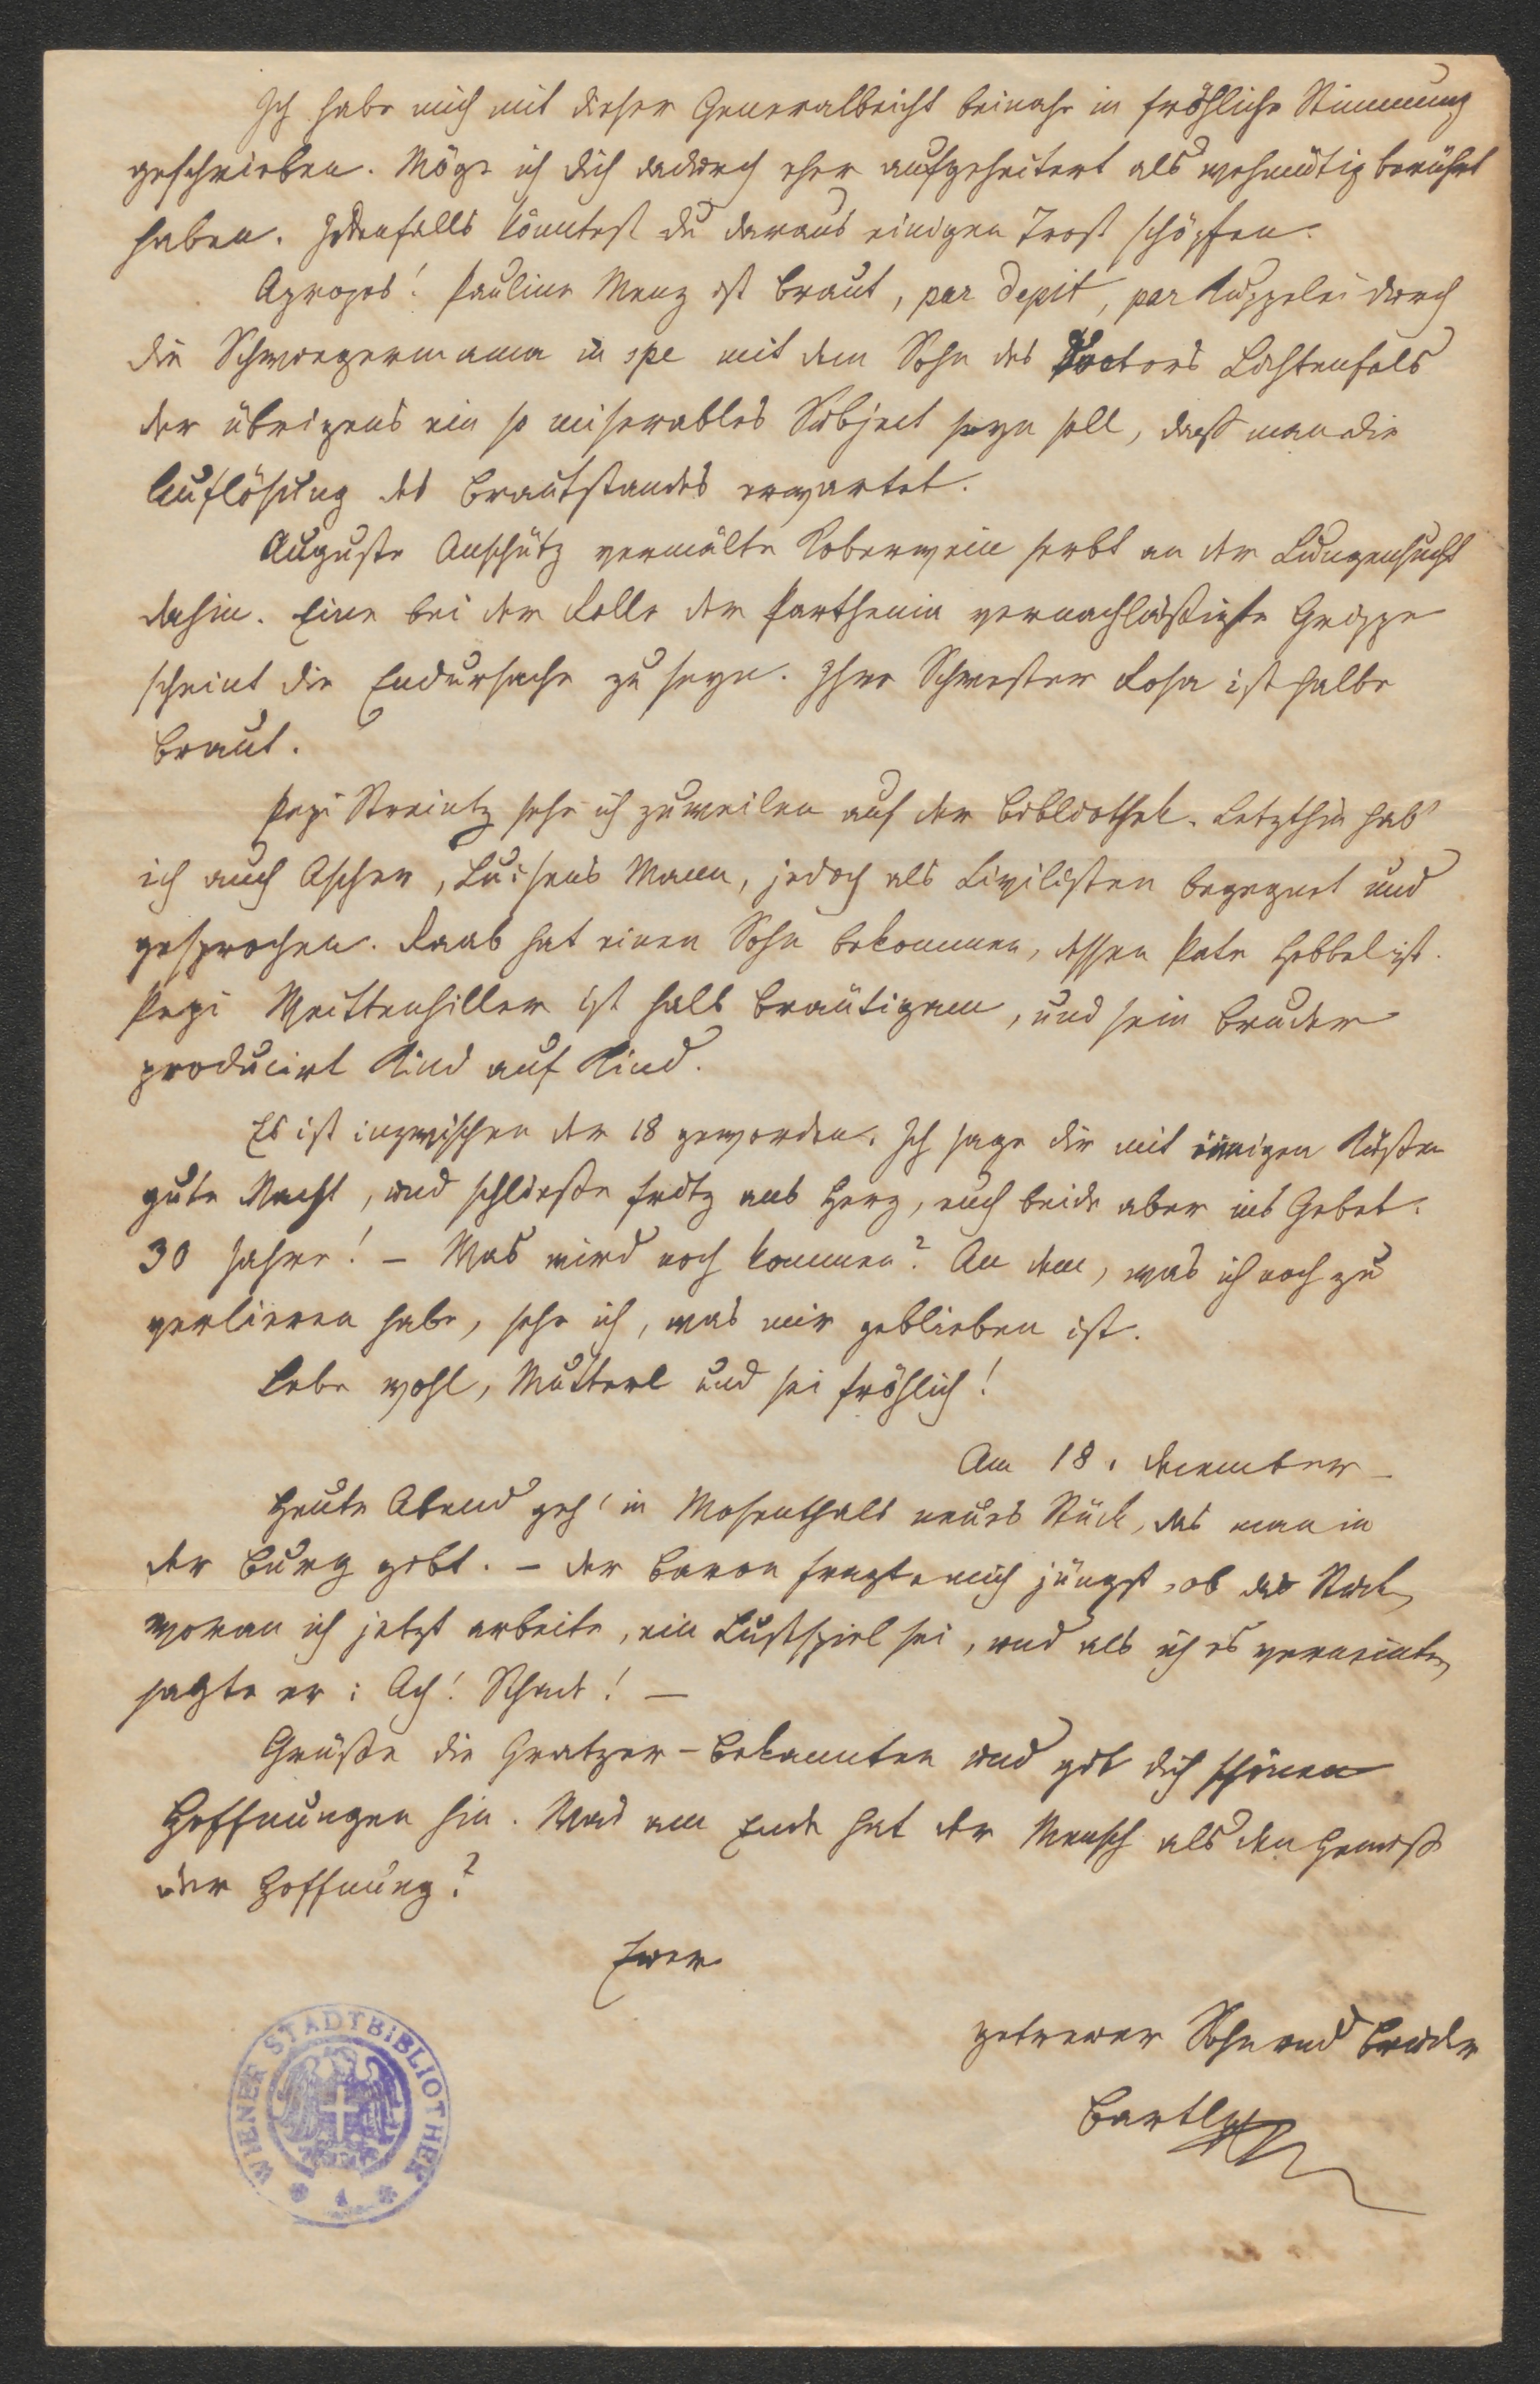 Ich habe mich mit dieser Generalbeicht beinahe in fröhliche Stimmung
geschrieben. Möge ich dich dadurch eher aufgeheitert als wehmütig berührt
haben. Jedenfalls könntest du daraus einigen Trost schöpfen.
Apropos! Pauline Menz ist Braut, par depit, par Kuppelei durch
die Schwiegermama in spe mit dem Sohn des Doctors Lichtenfels
der übrigens ein so miserables Subject seyn soll, daß man die
Auflösung des Brautstandes erwartet.
Auguste Anschütz vermälte Koberwein serbt an der Lungensucht
dahin. Eine bei der Rolle der Parthenia vernachläßigte Grippe
scheint die Endursache zu seyn. Ihre Schwester Rosa ist halbe
Braut.
Pepi Streintz sehe ich zuweilen auf der Bibliothek. Letzthin hab'
ich auch Ascher, Luisens Mann, jedoch als Civilisten begegnet und
gesprochen. Raab hat einen Sohn bekommen, dessen Pate Hebbel ist.
Pepi Weittenhiller ist halb Bräutigam, und sein Bruder
producirt Kind auf Kind.
Es ist inzwischen der 18 geworden. Ich sage dir mit innigen Küßen
gute Nacht, und schließe Fritz ans Herz, euch beide aber ins Gebet.
30 Jahre! – Was wird noch kommen? An dem, was ich noch zu
verlieren habe, sehe ich, was mir geblieben ist.
Lebe wohl, Mutterl und sei fröhlich!
Am 18. December
Heute Abend geh' in Mosenthals neues Stück, das man in
der Burg gibt. – Der Baron fragte mich jüngst, ob das Stück,
woran ich jetzt arbeite, ein Lustspiel sei, und als ich es verneinte,
sagte er: Ach! Schad! –
Grüße die Gratzer-Bekannten und gib dich schönen
Hoffnungen hin. Was am Ende hat der Mensch als den Genuß
der Hoffnung?
Euer
getreuer Sohn und Bruder
Bartl
WIENER STADTBIBLIOTHEK